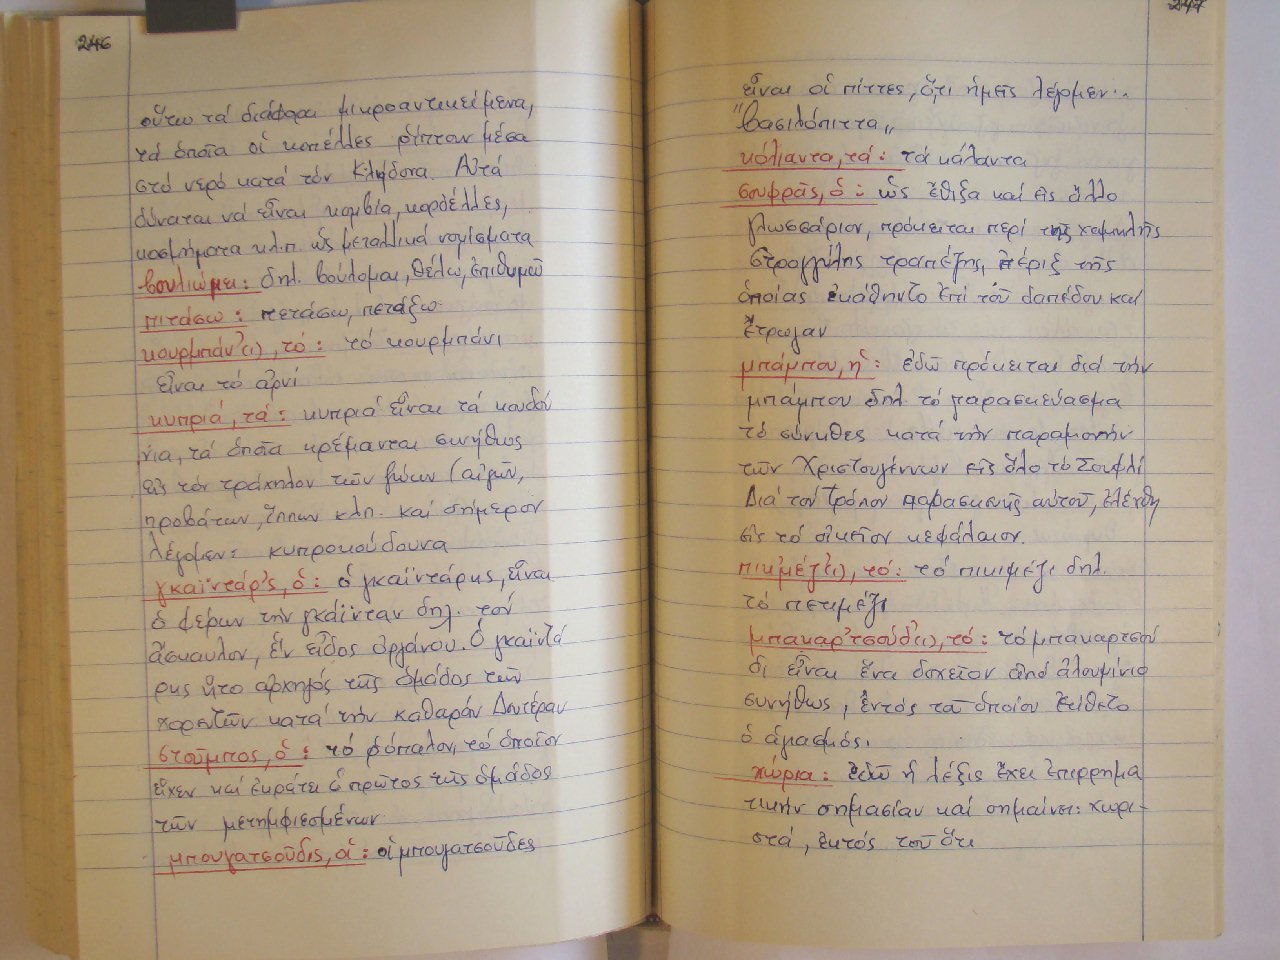 246
οὕτω τά διάφορα μικροαντικείμενα,
τά ὁποῖα οἱ κοπέλλες ρίπτουν μέσα
στό νερό κατά τόν Κλήδονα. Αὐτά
δύναται νά εἶναι κομβία, κορδέλλες,
κοσμήματα κλ.π. ὡς μεταλλικά νομίσματα
βουλιῶμι: δηλ. βούλομαι, θέλω, ἐπιθυμῶ
πιτάσω: πετάσω, πετάξω
κουρμπάν'(ι), τό: τό κουρμπάνι
εἶναι τό ἀρνί
κυπριά, τά: κυπριά εἶναι τά κουδού
νια, τά ὁποῖα κρέμανται συνήθως
εἰς τόν τράχηλον τῶν ζώων (αἰγῶν,
προβάτων, ἵππων κλπ. καί σήμερον
λέγομεν: κυπροκούδουνα
γκαϊντάρ'ς, ὁ: ὁ γκαϊντάρης, εἶναι
ὁ φέρων τήν γκάϊνταν δηλ. τόν
ἄσκαυλον, ἕν εἶδος ὀργάνου. Ὁ γκαϊντά
ρης ἦτο ἀρχηγός τῆς ὁμάδος τῶν
χορευτῶν κατά τήν καθαράν Δευτέραν
στοῦμπος, ὁ: τό ρόπαλον, τό ὁποῖον
εἶχεν καί ἐκράτει ὁ πρῶτος τῆς ὁμάδος
τῶν μετημφιεσμένων
μπουγατσοῦδις, οἱ: οἱ μπουγατσοῦδες
247
εἶναι οἱ πίττες, ὅ,τι ἡμεῖς λέγομεν..
"βασιλόπιττα"
κόλιαντα, τά: τά κάλαντα
σουφρᾶς, ὁ: ὡς ἔθιξα καί εἰς ἄλλο
γλωσσάριον, πρόκειται περί τῆς χαμηλῆς
στρογγύλης τραπέζης, πέριξ τῆς
ὁποίας ἐκάθηντο ἐπί τοῦ δαπέδου καί
ἔτρωγαν
μπάμπου, ἡ: ἐδῶ πρόκειται διά τήν
μπάμπου δηλ. τό παρασκεύασμα
τό σύνηθες κατά τήν παραμονήν
τῶν Χριστουγέννων εἰς ὅλο τό Σουφλί
Διά τόν τρόπον παρασκευῆς αὐτοῦ, ἐλέχθη
εἰς τό οἰκεῖον κεφάλαιον.
πικ'μέζ'(ι), τό: τό πικιμέζι δηλ.
τό πετιμέζι
μπακαρ'τσούδ'(ι), τό: τό μπακαρτσού
δι εἶναι ἕνα δοχεῖον ἀπό ἀλουμίνιο
συνήθως, ἐντός τοῦ ὁποίου ἐτίθετο
ὁ ἁγιασμός.
χώρια: ἐδῶ ἡ λέξις ἔχει ἐπιρρημα
τικήν σημασίαν καί σημαίνει: χωρι-
στά, ἐκτός τοῦ ὅτι